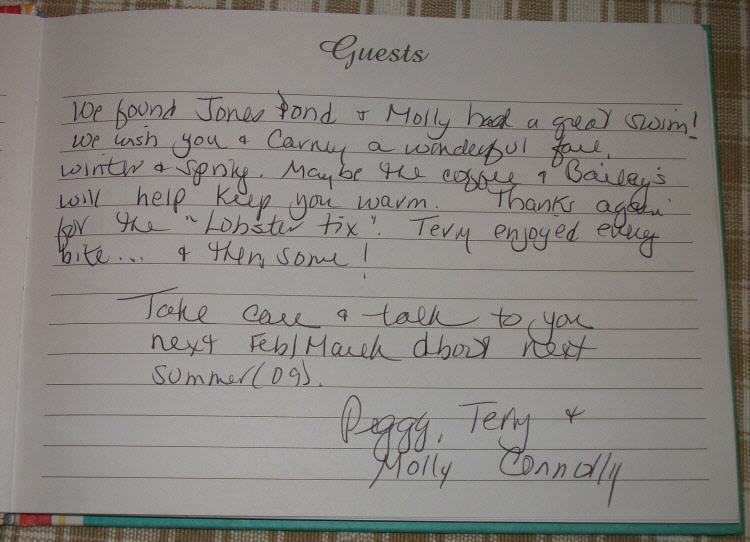 Guests
We found Jones Pond & Molly had a great swim!
We wish you & Carney a wonderful fall,
winter & spring. Maybe the coffee & Bailey's
will help keep you warm. Thanks again
for the "Lobster fix". Terry enjoyed every
bite... & then some!
Take care & talk to you
next Feb/March about next
summer (09).
Peggy, Terry &
Molly Connolly